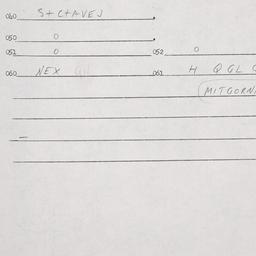 060 St CHAVES
050 0
051 0 052 0
060 NEX 061 H Q GL
MITGORN